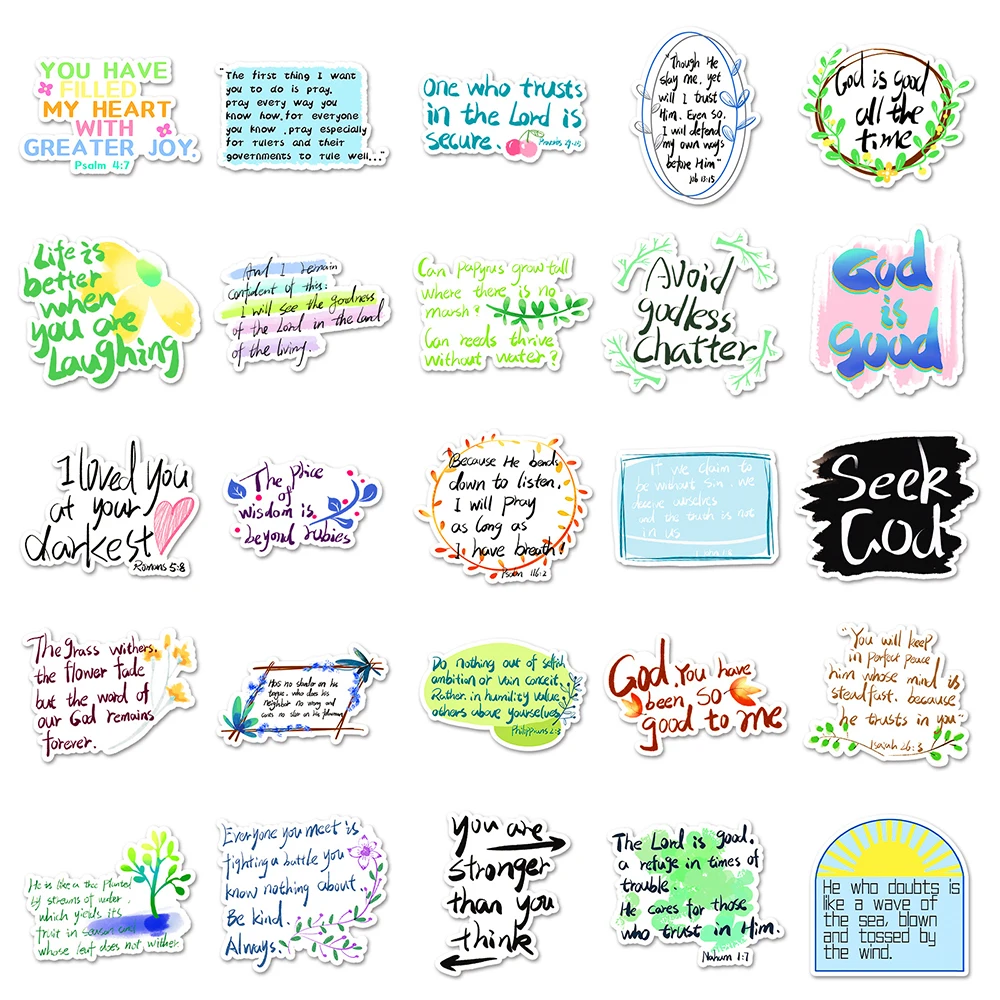 YOU HAVE
FILLED
MY HEART
WITH
GREATER JOY.
Psalm 4:7
"The first thing I want
you to do is pray.
pray every way you
know how, for everyone
you know .pray especially
for rulers and their
governments to rule well..."
One who trusts
in the Lord is
secure.
"Though He
slay me, yet
will I trust
Him. Even so,
I will defend
my own ways
before Him"
Job 13:15
God is good
all the
time
Life is
better
when
you are
Laughing
And I remain
confident of this:
I will see the goodness
of the Lord in the land
of the living.
Can papyrus grow tall
where there is no
marsh?
Can reeds thrive
without water?
Avoid
godless
chatter
God
is
good
I loved you
at your
darkest
Romans 5:8
The Price
of
wisdom is
beyond rubies
Because He bends
down to listen,
I will pray
as long as
I have breath!
Psalm 116:2
If we claim to
be without sin, we
deceive ourselves
and the truth is not
in us
Seek
God
The grass withers.
the flower fade
but the word of
our God remains
forever.
Has no slander on his
tongue, who does his
neighbor no wrong and
casts no slur on his
Do nothing out of selfish
ambition or vain conceit.
Rather. in humility value
others above yourselves
Philippians 2:3
God. You have
been so
good to me
"You will keep
in perfect peace
him whose mind is
steadfast. because
he trusts in you"
Isaiah 26:3
He is like a tree planted
by streams of water,
which yields its
fruit in season and
whose leaf does not wither
Everyone you meet is
fighting a battle you
know nothing about.
Be kind.
Always.
you are
stronger
than you
think
The Lord is good,
a refuge in times of
trouble.
He cares for those
who trust in Him.
Nahum 1:7
He who doubts is
like a wave of
the sea, blown
and tossed by
the wind.